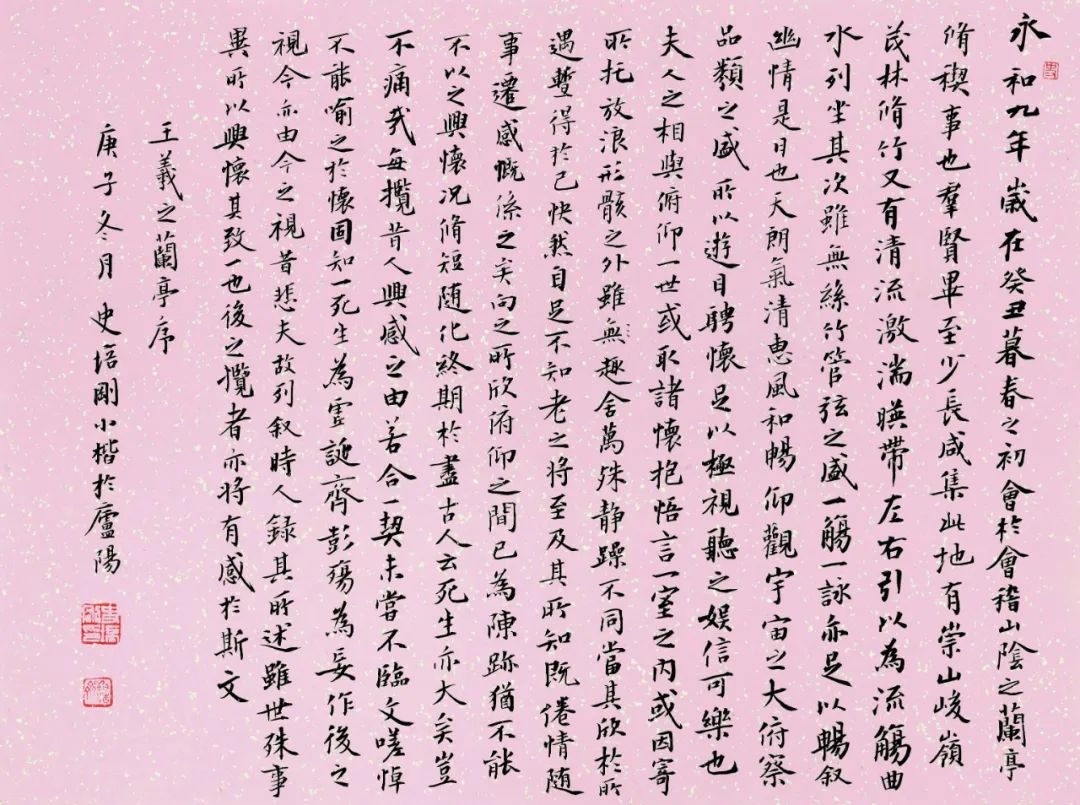 永和九年歲在癸丑暮春之初會於會稽山陰之蘭亭
脩禊事也羣賢畢至少長咸集此地有崇山峻嶺
茂林脩竹又有清流激湍暎帶左右引以為流觴曲
水列坐其次雖無絲竹管弦之盛一觴一詠亦足以暢叙
幽情是日也天朗氣清惠風和暢仰觀宇宙之大俯察
品類之盛所以遊目聘懷足以極視聽之娱信可樂也
夫人之相與俯仰一世或取諸懷抱悟言一室之内或因寄
所托放浪形骸之外雖無趣舍萬殊静躁不同當其欣於所
遇暫得於己快然自足不知老之将至及其所知既倦情随
事遷感慨係之矣向之所欣俯仰之間已為陳跡猶不能
不以之興懷况脩短随化終期於盡古人云死生亦大矣豈
不痛哉每攬昔人興感之由若合一契未嘗不臨文嗟悼
不能喻之於懷固知一死生為虚誕齊彭殤為妄作後之
視今亦由今之視昔悲夫故列叙時人錄其所述雖世殊事
異所以興懷其致一也後之攬者亦将有感於斯文
王羲之蘭亭序
庚子冬月史培剛小楷於廬陽